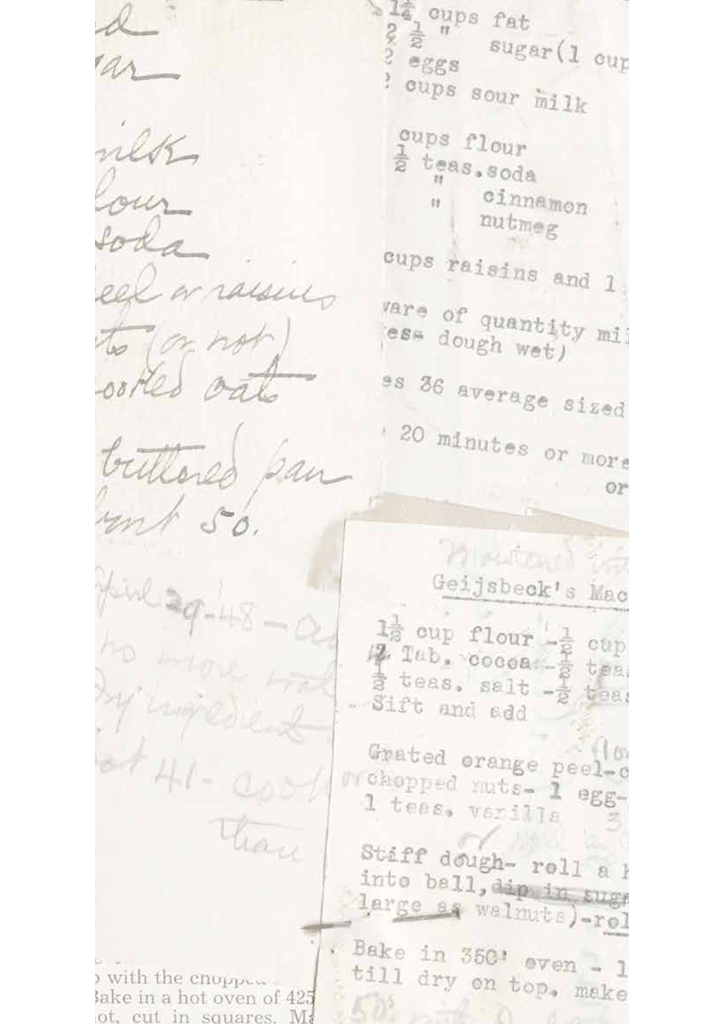 d
gar
milk
lour
soda
eel or raisins
ts (or not)
ooked oats
buttered pan
front 50.
April 29-48 –
no more
Dry ingredient
at 41- cook
than
with the chopped
Bake in a hot oven of 425
ot, cut in squares.
1¼ cups fat
2 ½ " sugar(1 cup
2 eggs
2 cups sour milk
cups flour
½ teas.soda
" cinnamon
" nutmeg
cups raisins and 1
ware of quantity mil
es- dough wet)
es 36 average sized
20 minutes or more
or
Moistened
Geijsbeck's Mac
1½ cup flour -½ cup
Tab. cocoa -½ teas
½ teas. salt -½ teas
Sift and add
Grated orange peel-c
or chopped nuts- 1 egg-
1 teas. vanilla 3
or
Stiff dough- roll a h
into ball, dip in suga
large as walnuts)-rol
Bake in 350' oven - 1
till dry on top. make
50.